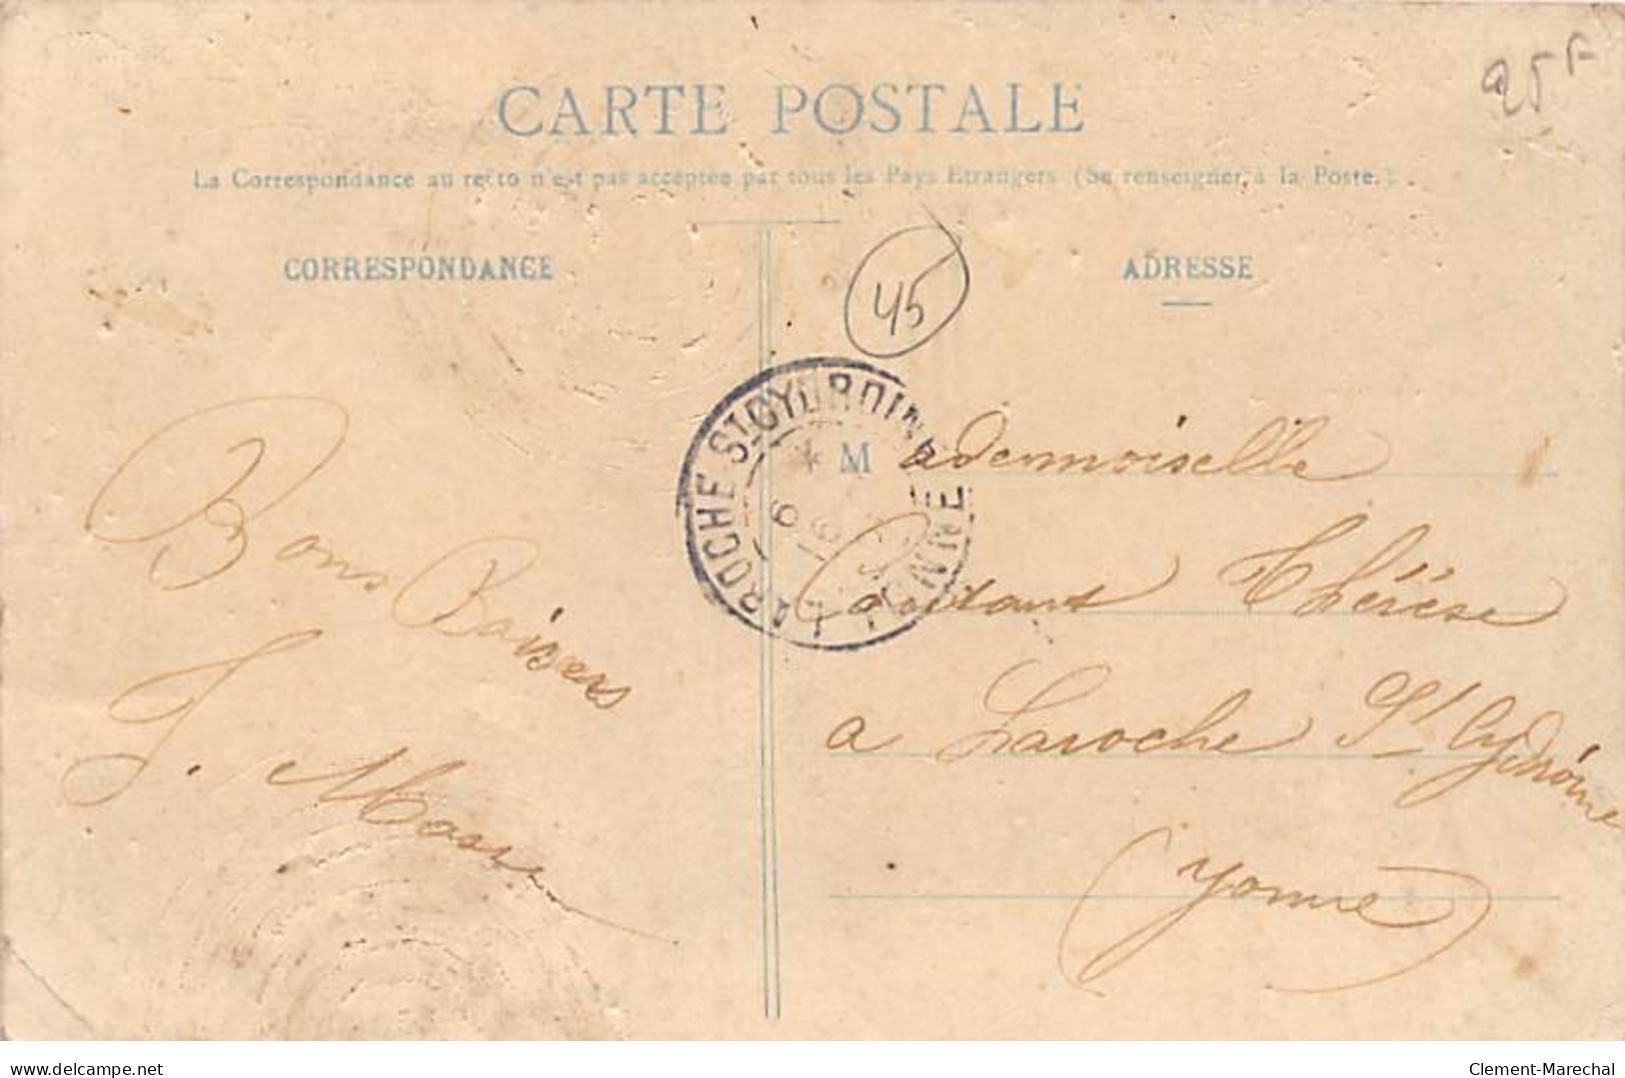 25F
CARTE POSTALE
La Correspondance au recto n'est pas acceptée par tous les Pays Etrangers (Se renseigner à la Poste.)
CORRESPONDANCE
ADRESSE
45
LAROCHE ST CYDROINE
YONNE
Bons Baisers
J. Masse
Mademoiselle
Coutant Thérèse
a Laroche St Cydroine
(Yonne)
delcampe.net
Clement-Marechal